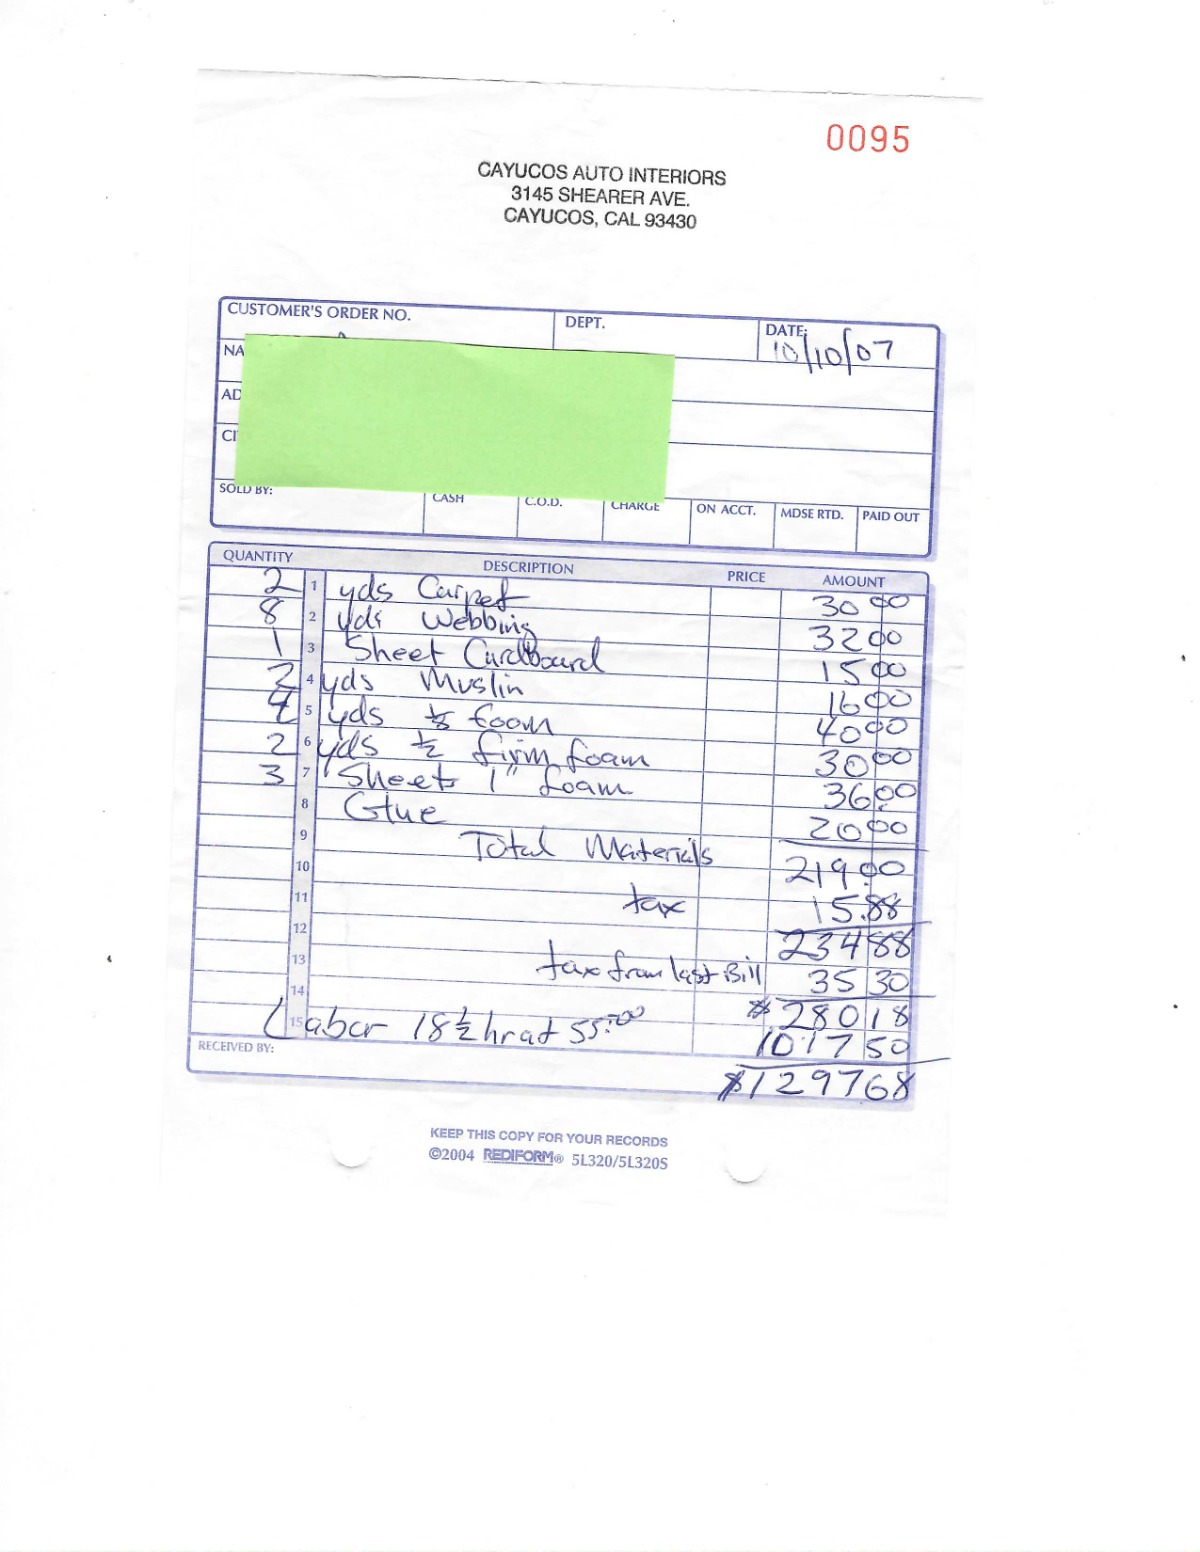 0095
CAYUCOS AUTO INTERIORS
3145 SHEARER AVE.
CAYUCOS, CAL 93430
CUSTOMER'S ORDER NO. DEPT. DATE: 10/10/07
NA
AD
CI
SOLD BY: CASH C.O.D. CHARGE ON ACCT. MDSE RTD. PAID OUT
QUANTITY DESCRIPTION PRICE AMOUNT
2 1 yds Carpet 30 00
8 2 yds Webbing 32 00
1 3 Sheet Cardboard 15 00
2 4 yds Muslin 16 00
4 5 yds foam 40 00
2 6 yds 1/2 firm foam 30 00
3 7 Sheets 1" foam 36.00
8 Glue 20 00
9 Total Materials 219.00
10
11 tax 15.88
12 234 88
13 tax from last Bill 35 30
14 $280 18
15 Labor 18 1/2 hr at 55.00 1017 50
RECEIVED BY: $1297 68
KEEP THIS COPY FOR YOUR RECORDS
©2004 REDIFORM® 5L320/5L320S